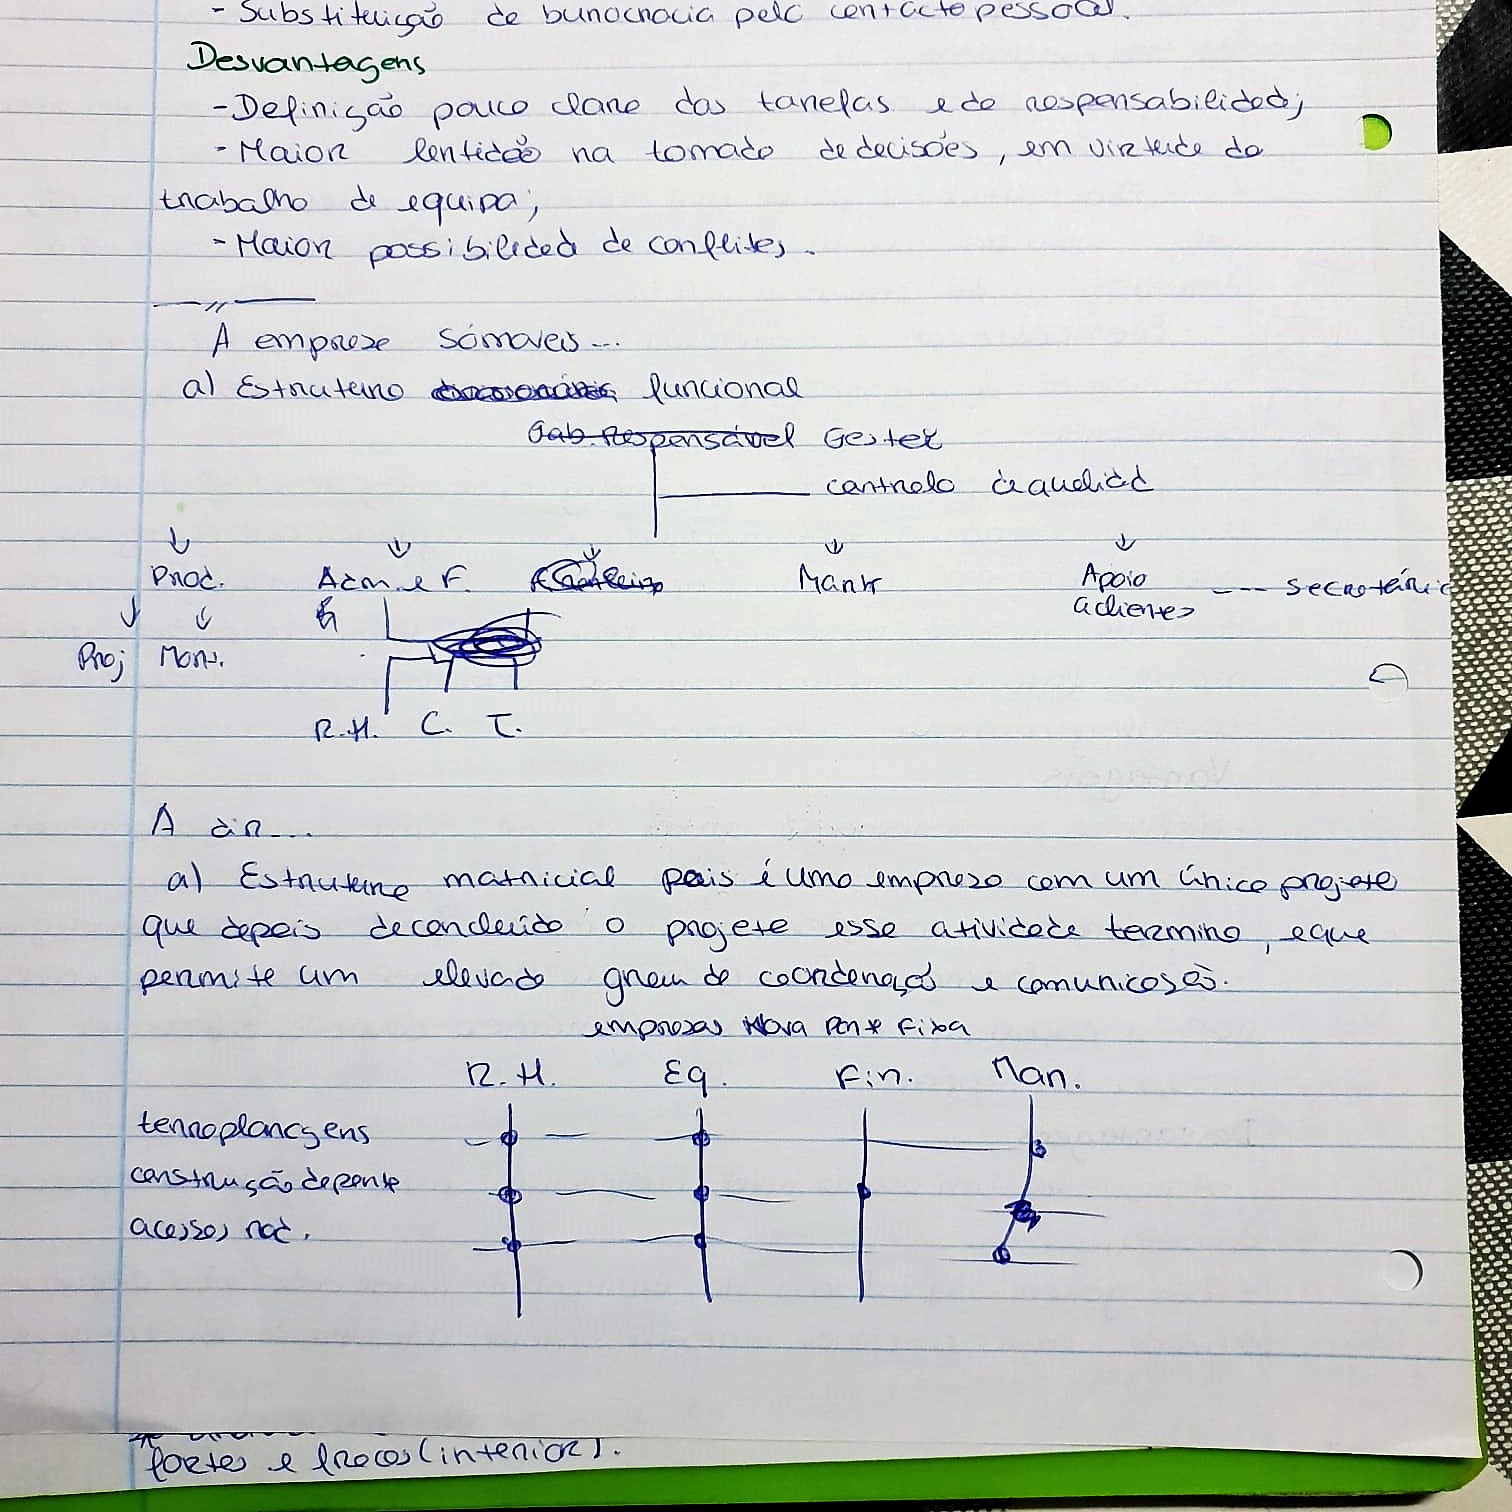 - Substituição de burocracia pelo contacto pessoal.
Desvantagens
- Definição pouco clara das tarefas e da responsabilidade;
- Maior lentidão na tomada de decisões, em virtude do
trabalho de equipa;
- Maior possibilidade de conflitos.
A empresa Sómoveis...
a) Estrutura funcional
Gab. Responsável Gestor
controlo de qualidad
Prod. Adm. e F. Mant Apoio a clientes --- secretária
Proj Mont.
R.H. C. T.
A dir...
a) Estrutura matricial pois é uma empresa com um único projete
que depois de concluido o projete esse atividade termina, e que
permite um elevado grau de coordenação e comunicação.
empresas Nova Ponte Fixa
R.H. Eq. Fin. Man.
terraplanagens
construção de ponte
acessos rod.
fortes e fracos (interior).